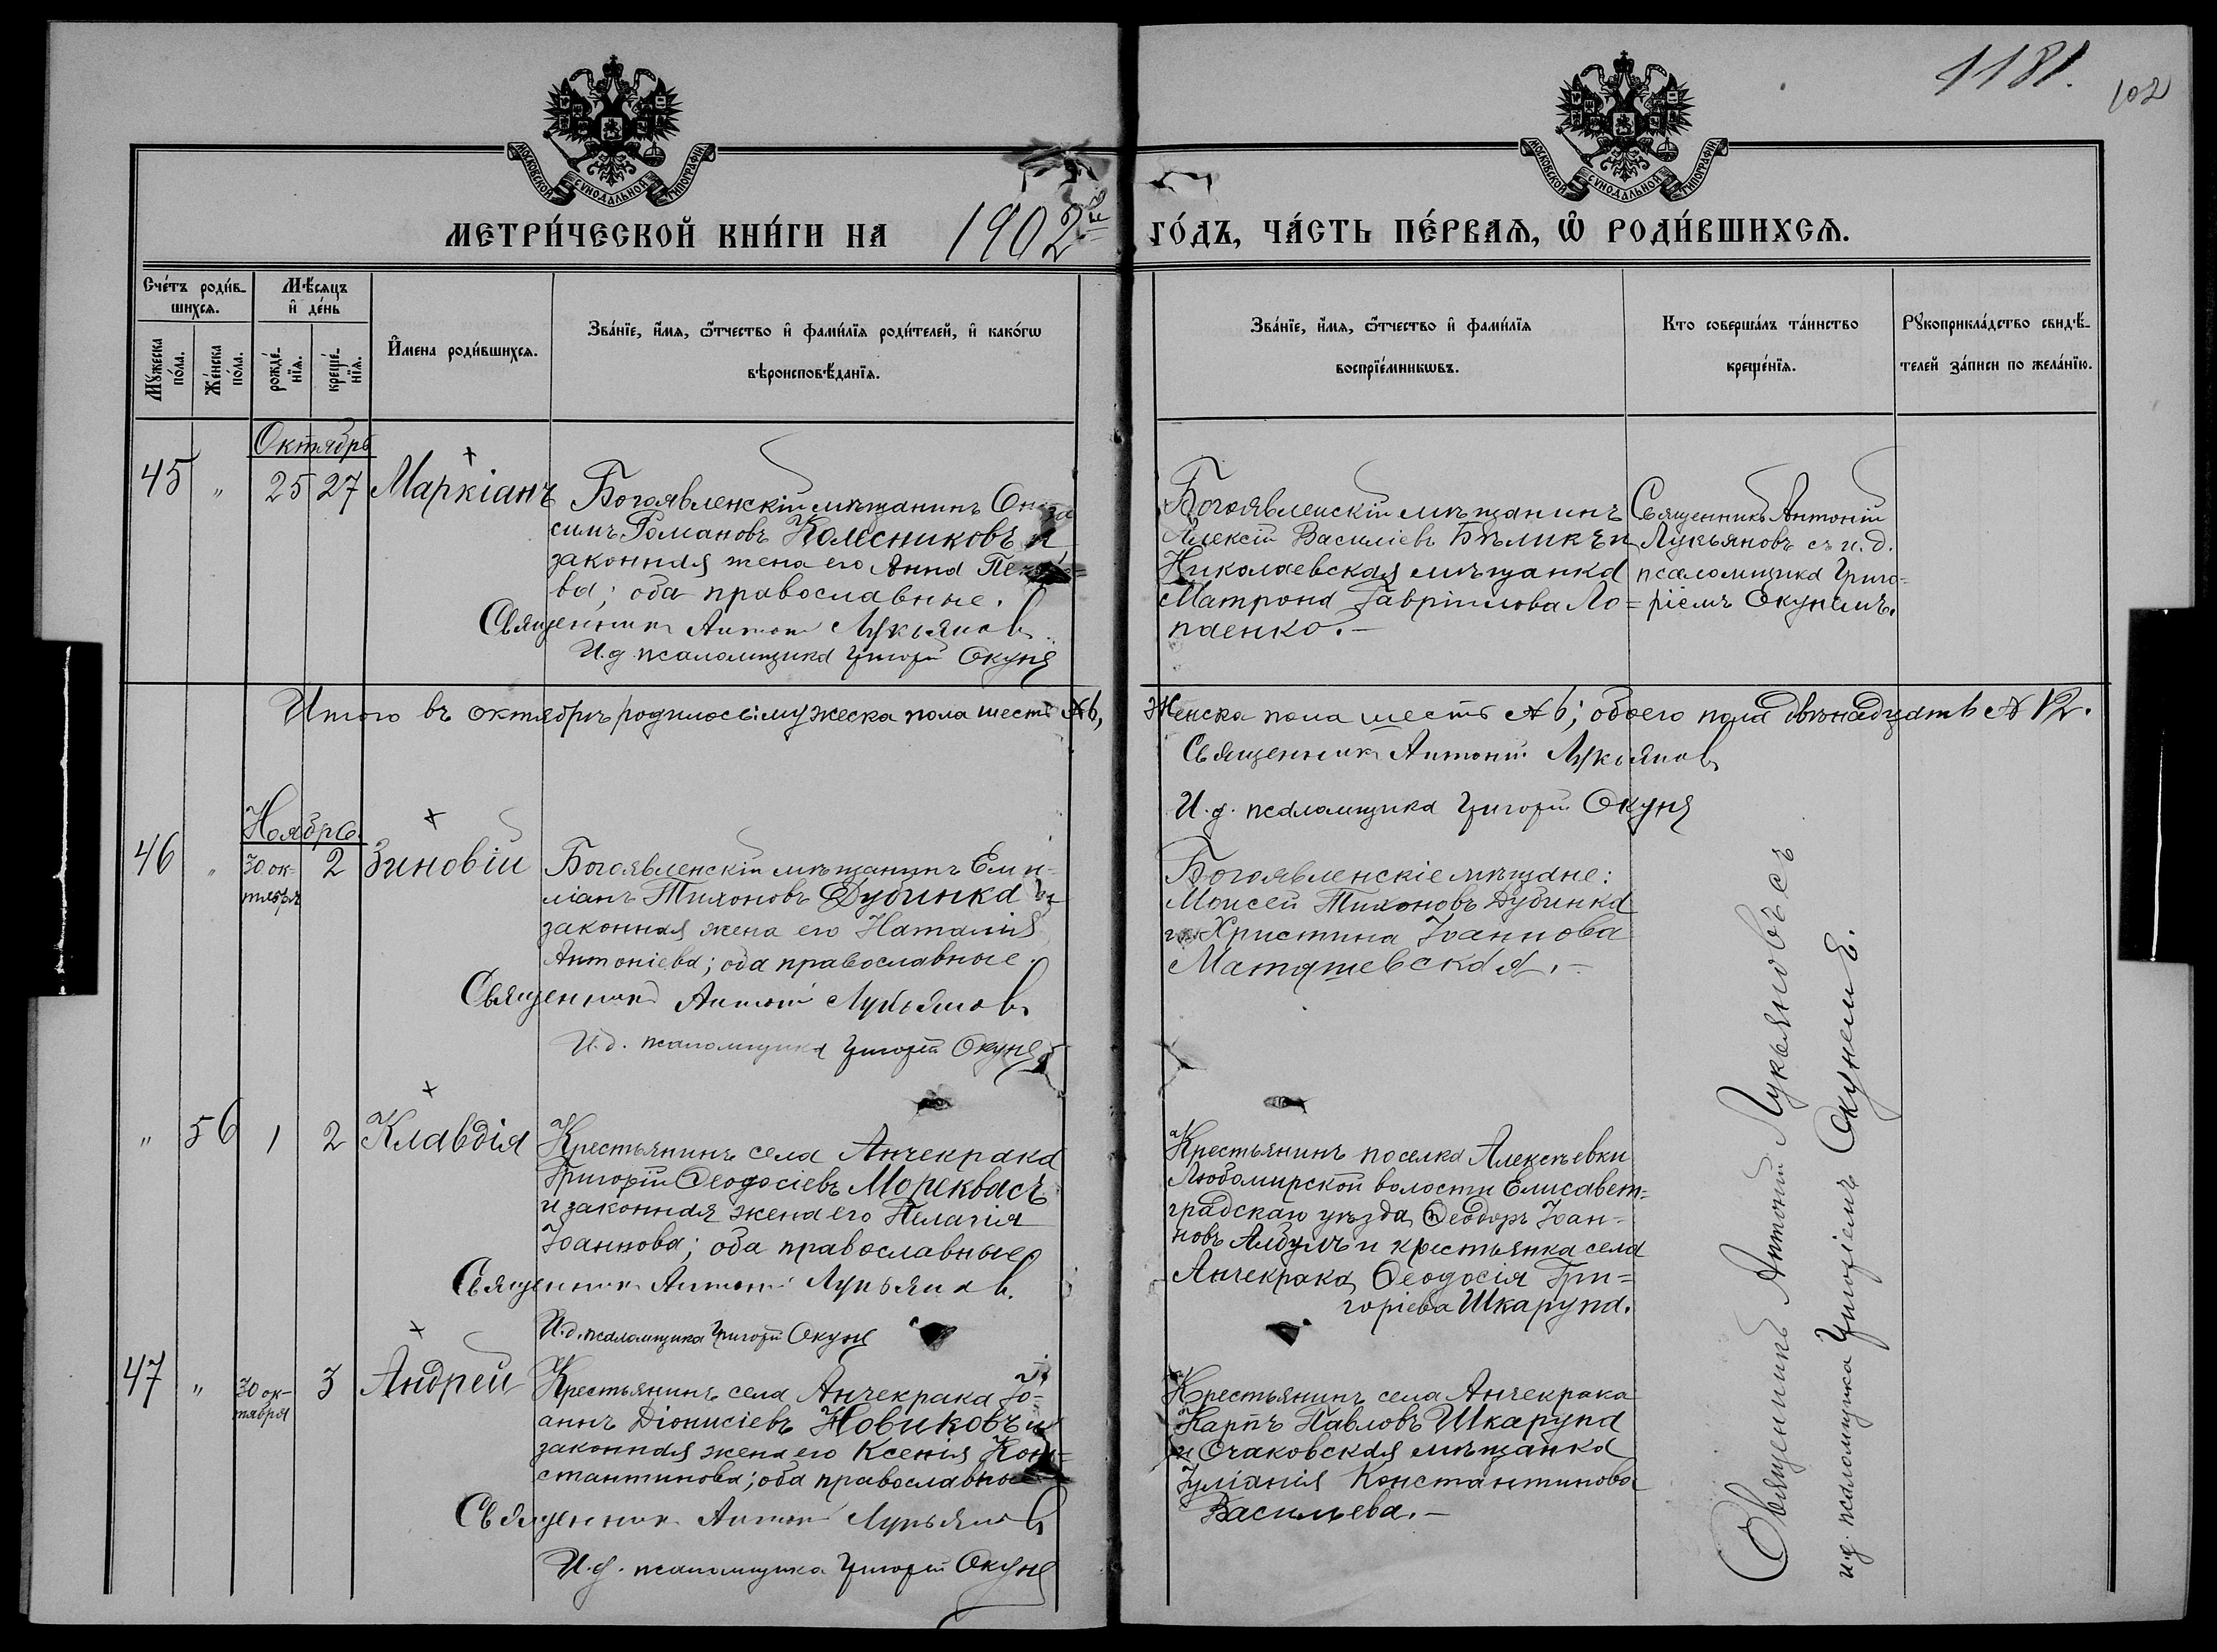 1181.
102
МОСКОВСКОЙ СѴНОДАЛЬНОЙ ТИПОГРАФІИ
МОСКОВСКОЙ СѴНОДАЛЬНОЙ ТИПОГРАФІИ
МЕТРИ́ЧЕСКОЙ КНИ́ГИ НА 1902й ГО́ДЪ, ЧА́СТЬ ПЕ́РВАѦ, Ѽ РОДИ́ВШИХСѦ.
Сче́тъ роди́в-
шихсѧ.
Мꙋ́жеска по́ла.
Же́нска по́ла.
Мѣ́сѧцъ
и҆ де́нь
рожде́-нїѧ.
креще́-нїѧ.
И҆мена роди́вшихсѧ.
Зва́нїе, и҆́мѧ, ѻ҆́тчество и҆ фами́лїѧ роди́телей, и҆ како́гѡ
вѣроисповѣ́данїѧ.
Зва́нїе, и҆́мѧ, ѻ҆́тчество и҆ фами́лїѧ
воспрїе́мникѡвъ.
Кто соверша́лъ та́инство
креще́нїѧ.
Рꙋкоприкла́дство свидѣ́-
телей за́писи по жела́нїю.
Октябрь
45 " 25 27 Маркіанъ
Богоявленскій мѣщанинъ Они-
симъ Романовъ Колесниковъ и
законная жена его Анна
ва; оба православные.
Священникъ Антоній Лукьяновъ
И.д. псаломщика Григорій Окунь
Богоявленскій мѣщанинъ
Алексій Василіевъ Бѣликъ и
Николаевская мѣщанка
Матрона Гавріилова Ло=
паенко.-
Священникъ Антоній
Лукьяновъ съ и.д.
псаломщика Григо=
ріемъ Окунемъ.
Итого въ октябрѣ родилось: мужеска пола шесть № 6, Женска пола шесть № 6; обоего пола двѣнадцать № 12.
Священникъ Антоній Лукьяновъ
И.д. псаломщика Григорій Окунь
Ноябрь.
46 " 30 ок-
тября 2 Зиновій
Богоявленскій мѣщанинъ Еми-
ліанъ Тихоновъ Дубинка и
законная жена его Наталія
Антоніева; оба православные.
Священникъ Антоній Лукьяновъ
И.д. псаломщика Григорій Окунь
Богоявленскіе мѣщане:
Моисей Тихоновъ Дубинка
и Христина Іоаннова
Матяшевская.-
" 56 1 2 Клавдія
Крестьянинъ села Анчекрака
Григорій Ѳеодосіевъ Мореквасъ
и законная жена его Пелагія
Іоаннова; оба православные
Священникъ Антоній Лукьяновъ
И.д. псаломщика Григорій Окунь
Крестьянинъ поселка Алексѣевки
Любомирской волости Елисавет=
градскаго уѣзда Ѳеодоръ Іоан-
новъ Албулъ и крестьянка села
Анчекрака Ѳеодосія Гри=
горіева Шкарупа.
47 " 30 ок-
тября 3 Андрей
Крестьянинъ села Анчекрака Іо-
аннъ Діонисіевъ Новиковъ и
законная жена его Ксенія Кон=
стантинова; оба православные
Священникъ Антоній Лукьяновъ
И.д. псаломщика Григорій Окунь
Крестьянинъ села Анчекрака
Карпъ Павловъ Шкарупа
и Очаковская мѣщанка
Іуліанія Константинова
Васильева.-
Священникъ Антоній Лукьяновъ съ
и.д. псаломщика Григоріемъ Окунемъ.